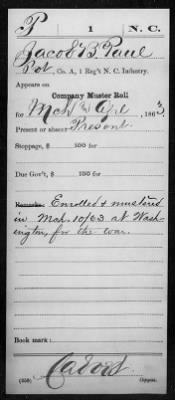 P | 1 | N. C.
Jacob B. Paul
Pvt, Co. A, 1 Reg't N. C. Infantry.
Appears on
Company Muster Roll
for Mch & Apl, 1863
Present or absent Present
Stoppage, $ 100 for
Due Gov't, $ 100 for
Remarks: Enrolled & mustered
in Mch. 10/63 at Wash-
ington, for the war.
Book mark:
(358)
Copyist.